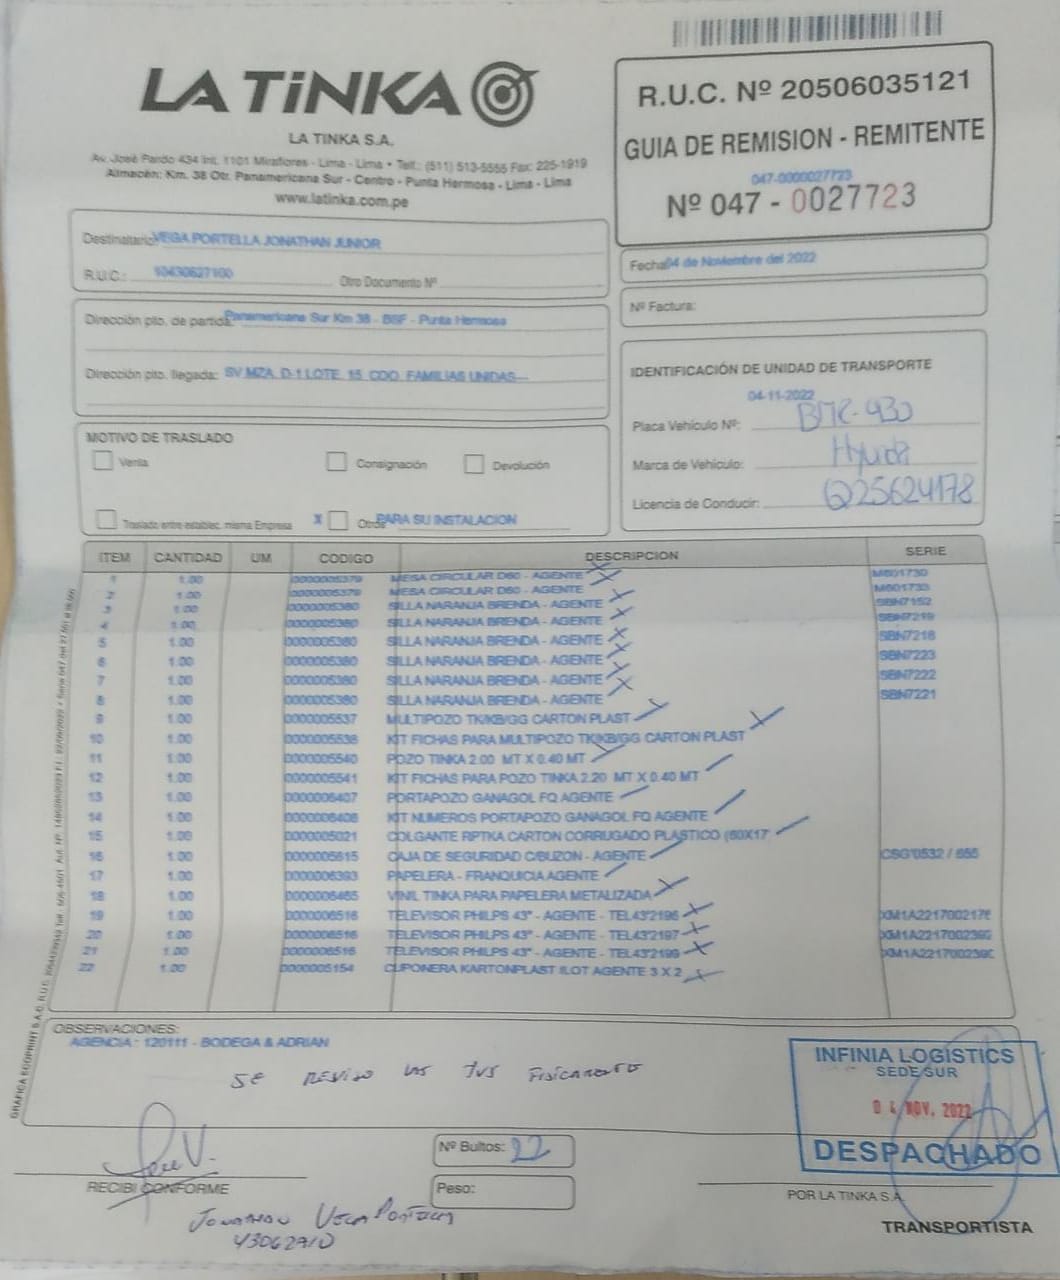 LA TiNKA
LA TINKA S.A.
Av. José Pardo 434 Int. 1101 Miraflores - Lima - Lima • Telf.: (511) 513-5555 Fax: 225-1919
Almacén: Km. 38 Otr. Panamericana Sur - Centro - Punta Hermosa - Lima - Lima
www.latinka.com.pe
R.U.C. Nº 20506035121
GUIA DE REMISION - REMITENTE
047-0000027723
Nº 047 - 0027723
Destinatario: VEGA PORTELLA JONATHAN JUNIOR
R.U.C.: 10430627100 Otro Documento Nº
Fecha: 04 de Noviembre del 2022
Nº Factura:
Dirección pto. de partida: Panamericana Sur Km 38 - BSF - Punta Hermosa
Dirección pto. llegada: SV MZA. D-1 LOTE. 15 COO. FAMILIAS UNIDAS---
IDENTIFICACIÓN DE UNIDAD DE TRANSPORTE
04-11-2022
Placa Vehículo Nº:
Marca de Vehículo:
Licencia de Conducir: Q25624178
MOTIVO DE TRASLADO
Venta Consignación Devolución
Traslado entre establec. misma Empresa X Otros PARA SU INSTALACION
ITEM CANTIDAD UM CODIGO DESCRIPCION SERIE
1 1.00 0000005379 MESA CIRCULAR D60 - AGENTE M601730
2 1.00 0000005379 MESA CIRCULAR D60 - AGENTE M601733
3 1.00 0000005380 SILLA NARANJA BRENDA - AGENTE SBN7152
4 1.00 0000005380 SILLA NARANJA BRENDA - AGENTE SBN7219
5 1.00 0000005380 SILLA NARANJA BRENDA - AGENTE SBN7218
6 1.00 0000005380 SILLA NARANJA BRENDA - AGENTE SBN7223
7 1.00 0000005380 SILLA NARANJA BRENDA - AGENTE SBN7222
8 1.00 0000005380 SILLA NARANJA BRENDA - AGENTE SBN7221
9 1.00 0000005537 MULTIPOZO TK/KB/GG CARTON PLAST
10 1.00 0000005538 KIT FICHAS PARA MULTIPOZO TK/KB/GG CARTON PLAST
11 1.00 0000005540 POZO TINKA 2.00 MT X 0.40 MT
12 1.00 0000005541 KIT FICHAS PARA POZO TINKA 2.20 MT X 0.40 MT
13 1.00 0000006407 PORTAPOZO GANAGOL FQ AGENTE
14 1.00 0000006408 KIT NUMEROS PORTAPOZO GANAGOL FQ AGENTE
15 1.00 0000005021 COLGANTE RPTKA CARTON CORRUGADO PLASTICO (60X17
16 1.00 0000005615 CAJA DE SEGURIDAD C/BUZON - AGENTE CSG'0532 / 655
17 1.00 0000006393 PAPELERA - FRANQUICIA AGENTE
18 1.00 0000006465 VINIL TINKA PARA PAPELERA METALIZADA
19 1.00 0000006516 TELEVISOR PHILPS 43" - AGENTE - TEL43'2196 XM1A2217002176
20 1.00 0000006516 TELEVISOR PHILPS 43" - AGENTE - TEL43'2197
21 1.00 0000006516 TELEVISOR PHILPS 43" - AGENTE - TEL43'2199
22 1.00 0000005154 CUPONERA KARTONPLAST ILOT AGENTE 3 X 2
OBSERVACIONES:
AGENCIA : 120111 - BODEGA & ADRIAN
SE REVISO LAS TVS FISICAMENTE
INFINIA LOGISTICS
SEDE SUR
04 NOV. 2022
DESPACHADO
Nº Bultos: 22
Peso:
RECIBI CONFORME
POR LA TINKA S.A.
TRANSPORTISTA
JONATHAN VEGA PORTELLA